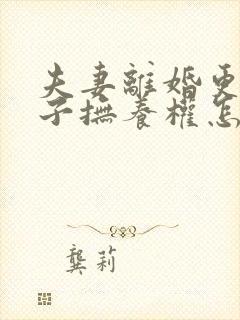 夫妻離婚更
子撫養權怎
龔莉